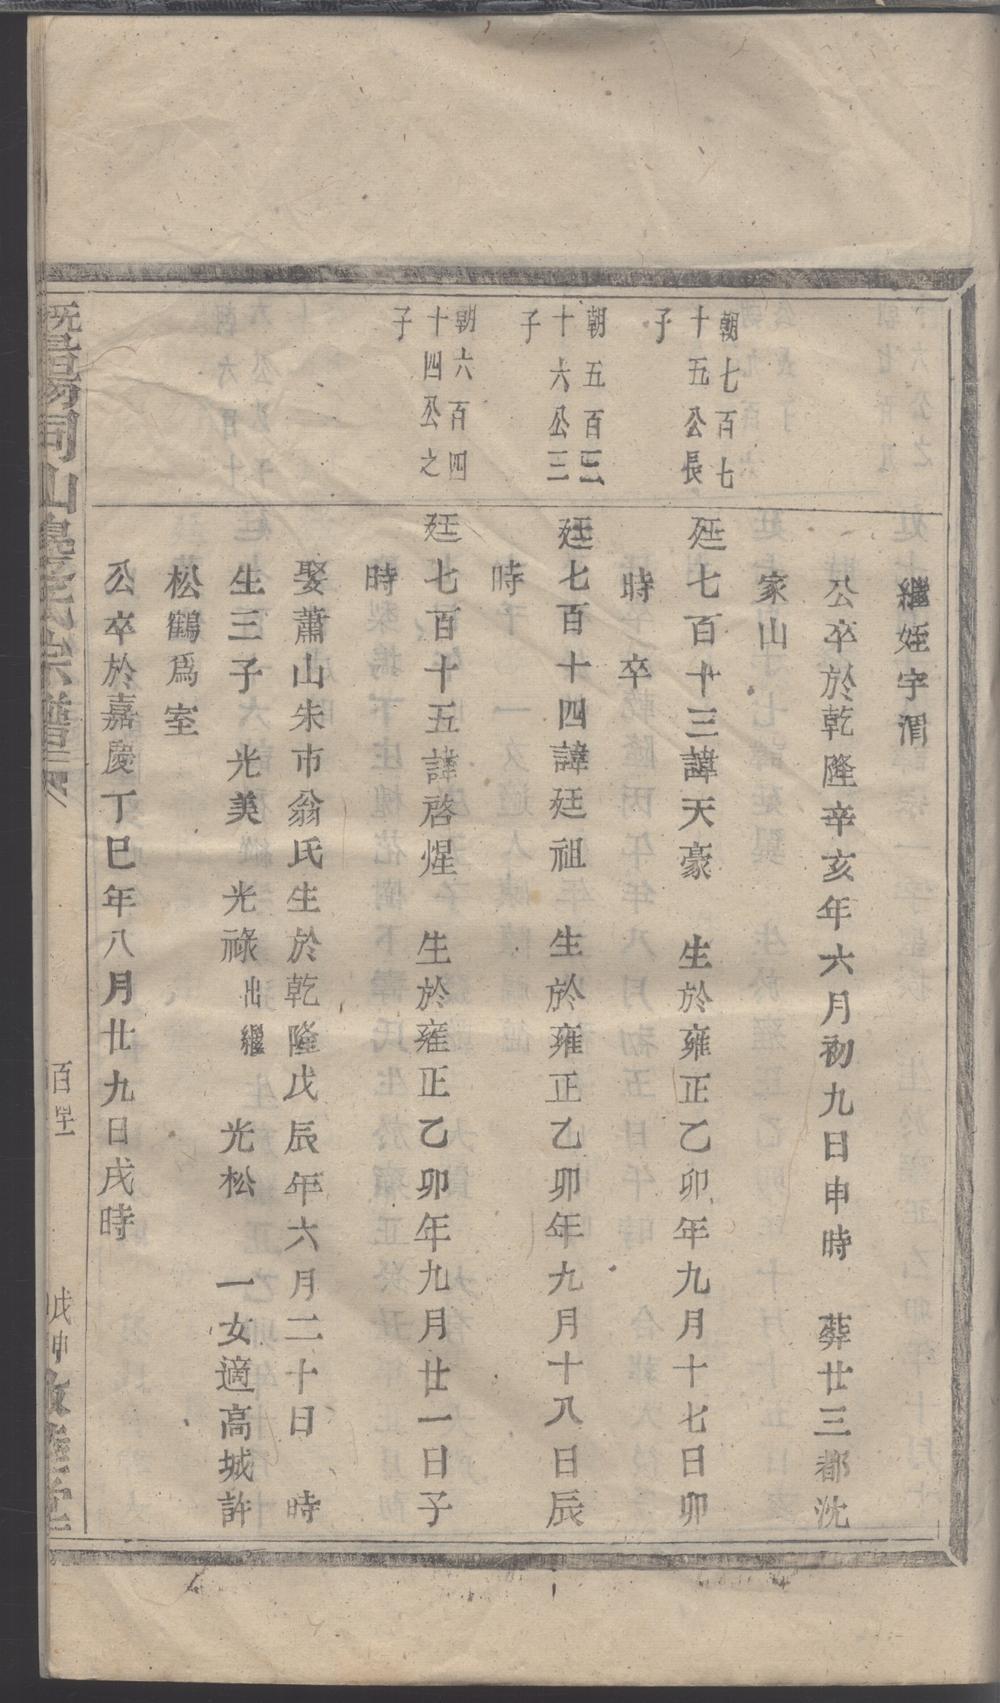 繼姪宇渭
公卒於乾隆辛亥年六月初九日申時　葬廿三都沈
家山
朝七百七
十五公長
子
廷七百十三諱天豪　生於雍正乙卯年九月十七日卯
時　卒
朝五百三
十六公三
子
廷七百十四諱廷祖　生於雍正乙卯年九月十八日辰
時
朝六百四
十四公之
子
廷七百十五諱啓煋　生於雍正乙卯年九月廿一日子
時
娶蕭山朱市翁氏生於乾隆戊辰年六月二十日　時
生三子　光美　光祿出繼　光松　一女適高城許
松鶴爲室
公卒於嘉慶丁巳年八月廿九日戌時
暨陽同山邊氏宗譜
戊申敦睦堂